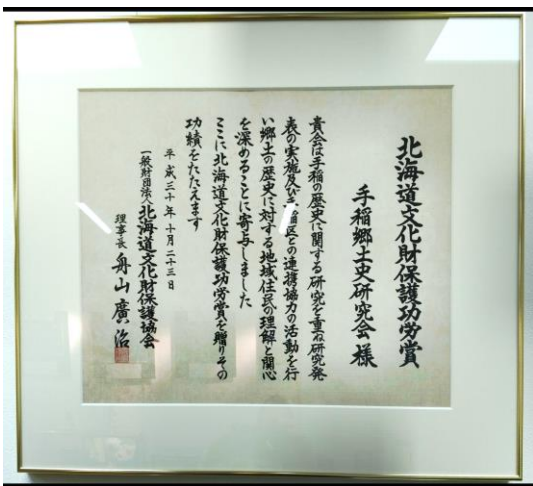 北海道文化財保護功労賞
手稲郷土史研究会 様
貴会は手稲の歴史に関する研究を重ね研究発
表の実施及び手稲区との連携協力の活動を行
い郷土の歴史に対する地域住民の理解と関心
を深めることに寄与しました
ここに北海道文化財保護功労賞を贈りその
功績をたたえます
平成三十年十月二十三日
一般財団法人北海道文化財保護協会
理事長 舟山廣治